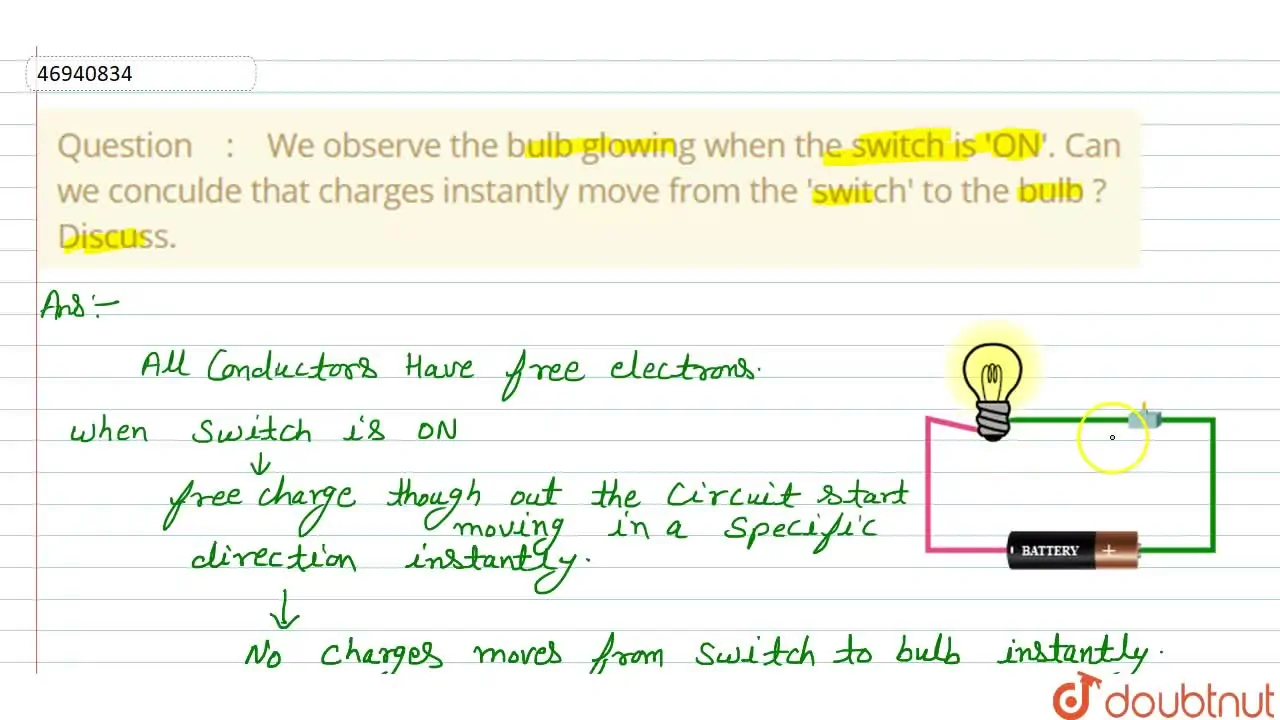 46940834
Question : We observe the bulb glowing when the switch is 'ON'. Can
we conculde that charges instantly move from the 'switch' to the bulb ?
Discuss.
Ans :-
All Conductors Have free electrons.
when switch is ON
free charge though out the circuit start
moving in a specific
direction instantly.
No charges moves from switch to bulb instantly.
BATTERY +
doubtnut